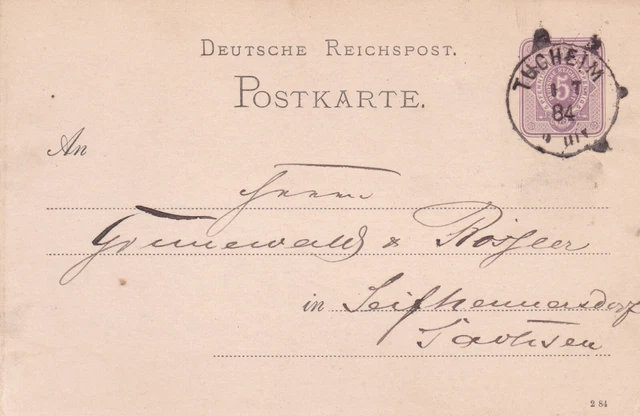 DEUTSCHE REICHSPOST.
POSTKARTE.
TUCHEIM
1 7
84
5
An
Herrn
Grunewald &
in Seifhennersdorf
Sachsen
2 84